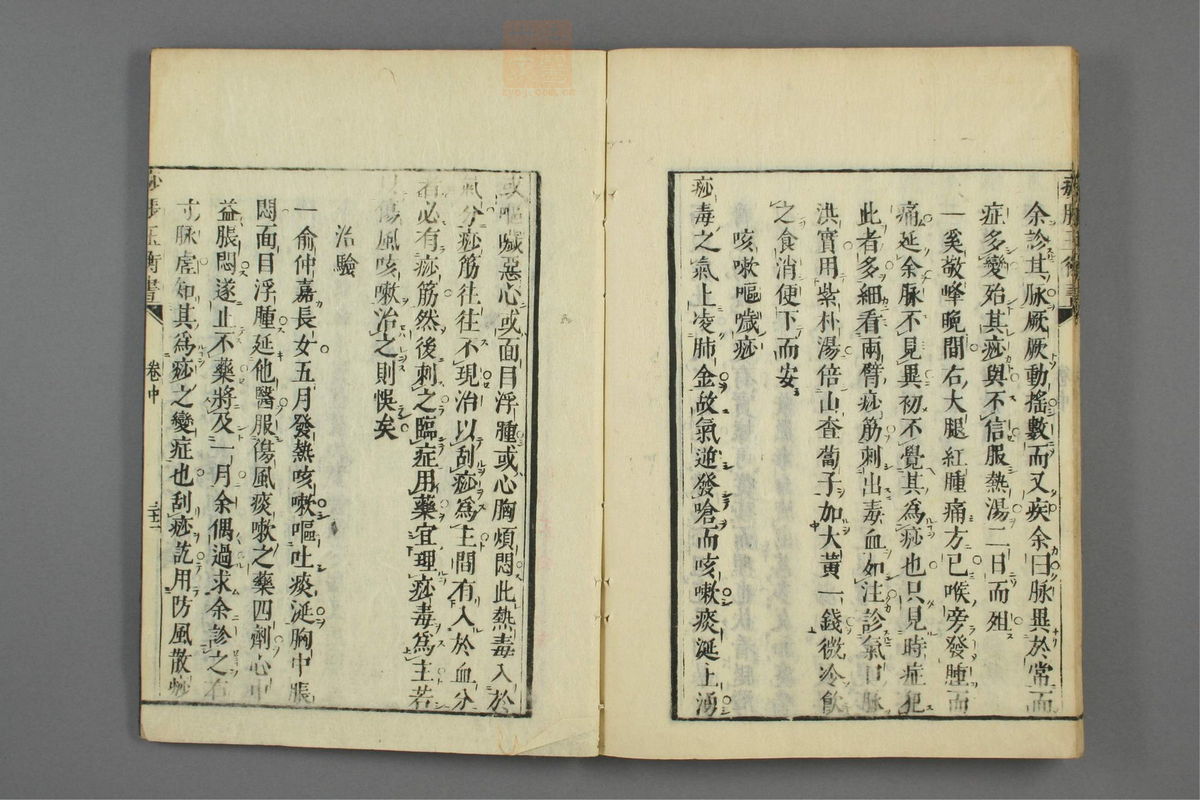 痧脹玉衡書
余診其脉厥厥動搖數而又疾余曰脉異於常而
症多變殆其痧與不信服熱湯二日而殂
一奚敬峰晚間右大腿紅腫痛方已喉旁發腫而
痛延余脉不見異初不覺其為痧也只見時症犯
此者多細看兩臂痧筋刺出毒血如注診氣口脉
洪實用紫朴湯倍山查蔔子加大黃一錢微冷飲
之食消便下而安
咳嗽嘔噦痧
痧毒之氣上凌肺金故氣逆發嗆而咳嗽痰涎上湧
或嘔噦惡心或面目浮腫或心胸煩悶此熱毒入於
氣分痧筋往往不現治以刮痧為主間有入於血分
者必有痧筋然後刺之臨症用藥宜理痧毒為主若
以傷風咳嗽治之則悞矣
治驗
一俞仲嘉長女五月發熱咳嗽嘔吐痰涎胸中脹
悶面目浮腫延他醫服傷風痰嗽之藥四劑心中
益脹悶遂止不藥將及一月余偶過求余診之右
寸脉虛知其為痧之變症也刮痧訖用防風散痧
痧脹玉衡書 卷中